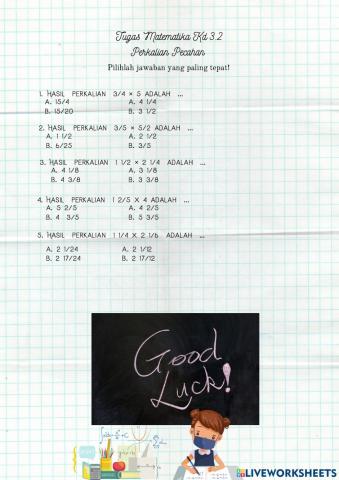 Tugas Matematika Kd 3.2
Perkalian Pecahan
Pilihlah jawaban yang paling tepat!
1. HASIL PERKALIAN 3/4 × 5 ADALAH ...
A. 15/4 A. 4 1/4
B. 15/20 B. 3 1/2
2. HASIL PERKALIAN 3/5 × 5/2 ADALAH ...
A. 1 1/2 A. 2 1/2
B. 6/25 B. 3/5
3. HASIL PERKALIAN 1 1/2 × 2 1/4 ADALAH ...
A. 4 1/8 A. 3 1/8
B. 4 3/8 B. 3 3/8
4. HASIL PERKALIAN 1 2/5 X 4 ADALAH ...
A. 5 2/5 A. 4 2/5
B. 4 3/5 B. 5 3/5
5. HASIL PERKALIAN 1 1/4 X 2 1/6 ADALAH ...
A. 2 1/24 A. 2 1/12
B. 2 17/24 B. 2 17/12
Good
Luck!
LIVEWORKSHEETS